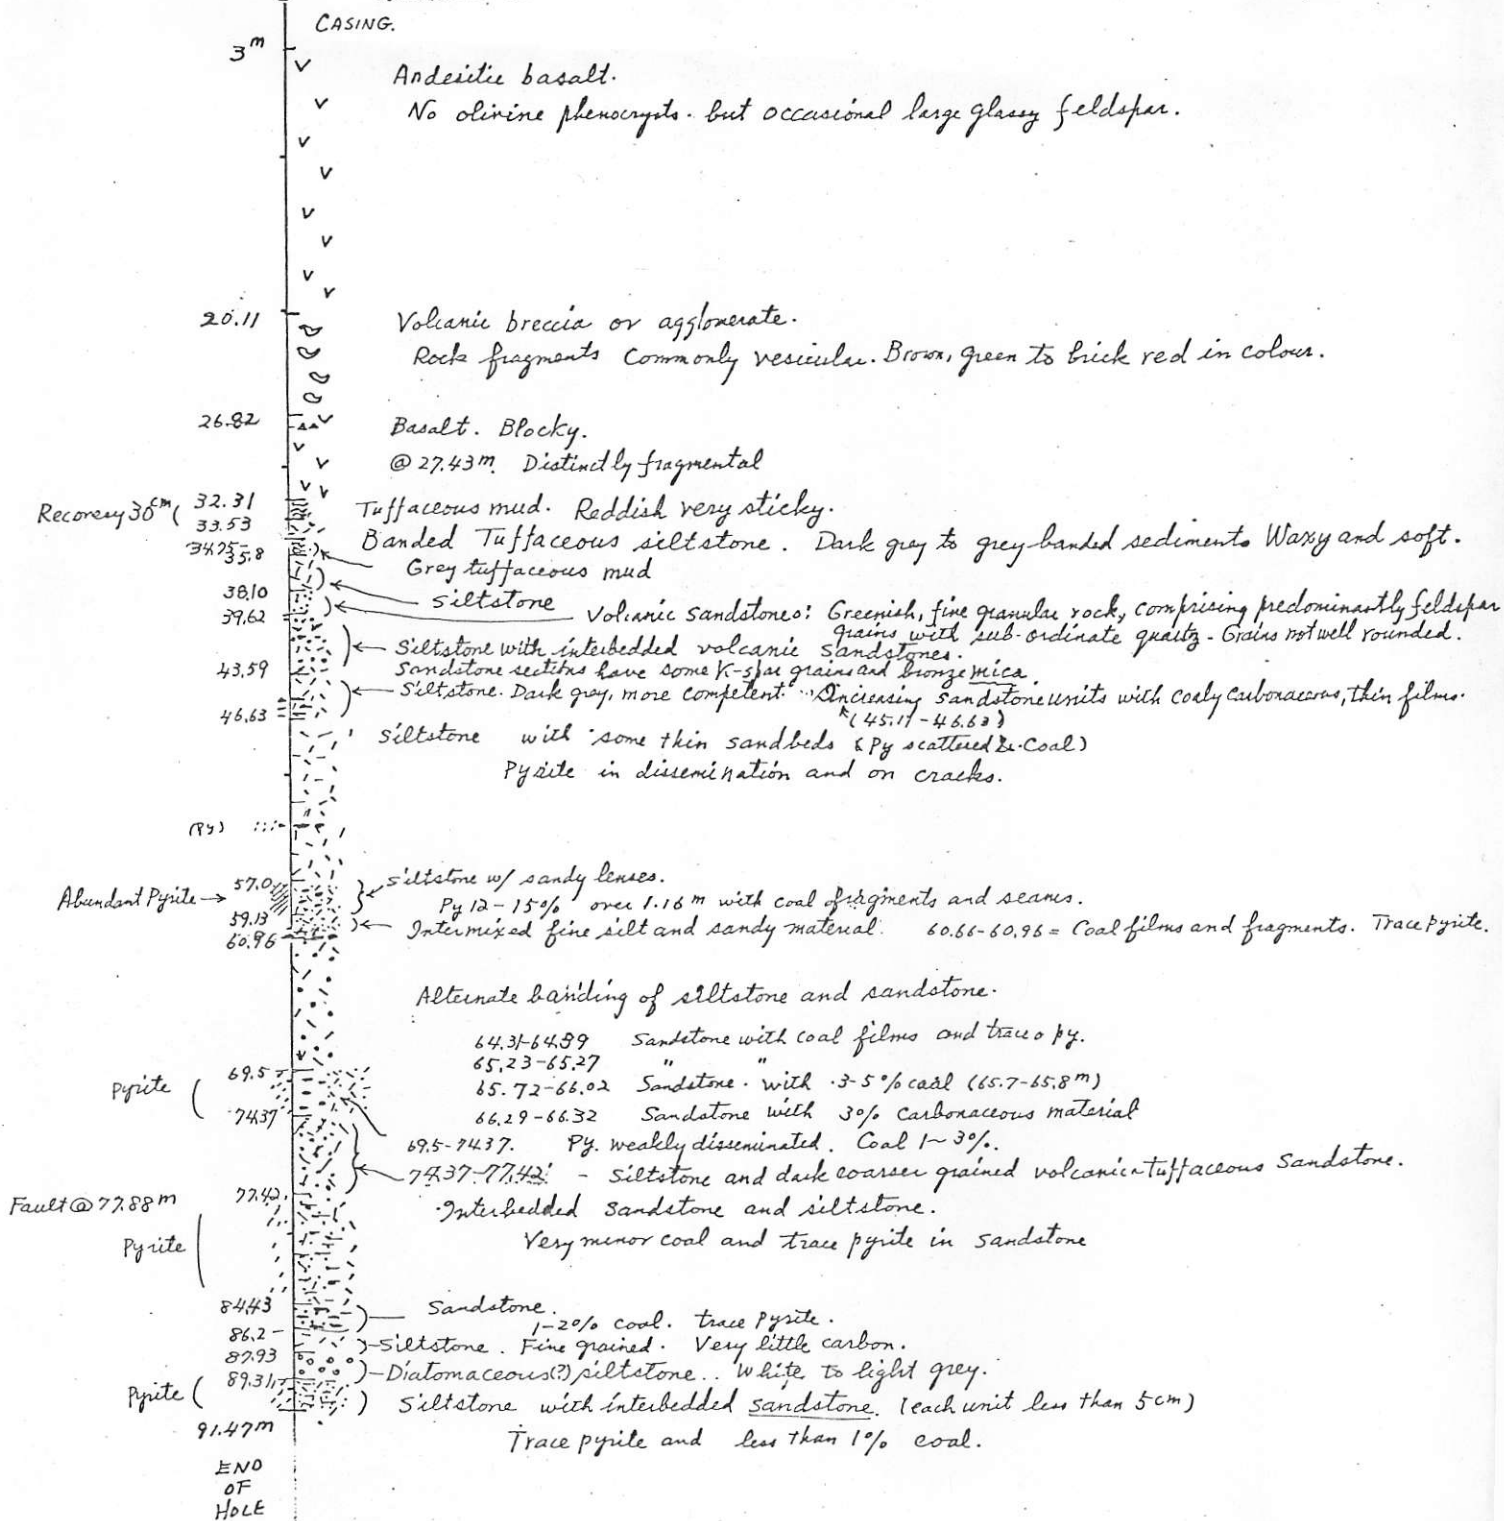 CASING.
3m
Andesitic basalt.
No olivine phenocrysts. but occasional large glassy feldspar.
20.11 Volcanic breccia or agglomerate.
Rock fragments Commonly vesicular. Brown, green to brick red in colour.
26.82 Basalt. Blocky.
@ 27.43m. Distinctly fragmental
Recovery 30cm ( 32.31 Tuffaceous mud. Reddish very sticky.
33.53 Banded Tuffaceous siltstone. Dark grey to grey banded sediments Waxy and soft.
34.75
35.8 Grey tuffaceous mud
38.10 Siltstone
39.62 Volcanic Sandstones: Greenish, fine granular rock, comprising predominantly feldspar
grains with sub-ordinate quartz - Grains not well rounded.
Siltstone with interbedded volcanic sandstones.
43.59 Sandstone sections have some K-spar grains and bronze mica.
Siltstone. Dark grey, more competent. Increasing sandstone units with coaly carbonaceous, thin films.
46.63 (45.11-46.63)
Siltstone with some thin sandbeds (Py scattered & Coal)
Pyrite in dissemination and on cracks.
(Py)
57.0 Siltstone w/ sandy lenses.
Abundant Pyrite → Py 12-15% over 1.16m with coal fragments and seams.
59.13 Intermixed fine silt and sandy material. 60.66-60.96 = Coal films and fragments. Trace pyrite.
60.96
Alternate banding of siltstone and sandstone.
64.31-64.89 Sandstone with coal films and trace py.
65.23-65.27 " "
69.5 65.72-66.02 Sandstone. with 3-5% coal (65.7-65.8m)
Pyrite (
74.37 66.29-66.32 Sandstone with 3% Carbonaceous material
69.5-74.37. Py. weakly disseminated. Coal 1~3%.
74.37-77.42 - Siltstone and dark coarser grained volcanic-tuffaceous Sandstone.
Fault @ 77.88m 77.42 Interbedded sandstone and siltstone.
Pyrite Very minor coal and trace pyrite in sandstone
84.43 Sandstone.
1-2% coal. trace Pyrite.
86.2 Siltstone. Fine grained. Very little carbon.
87.93 Diatomaceous(?) siltstone.. White to light grey.
Pyrite ( 89.31 Siltstone with interbedded sandstone. (each unit less than 5cm)
91.47m Trace pyrite and less than 1% coal.
END
OF
HOLE